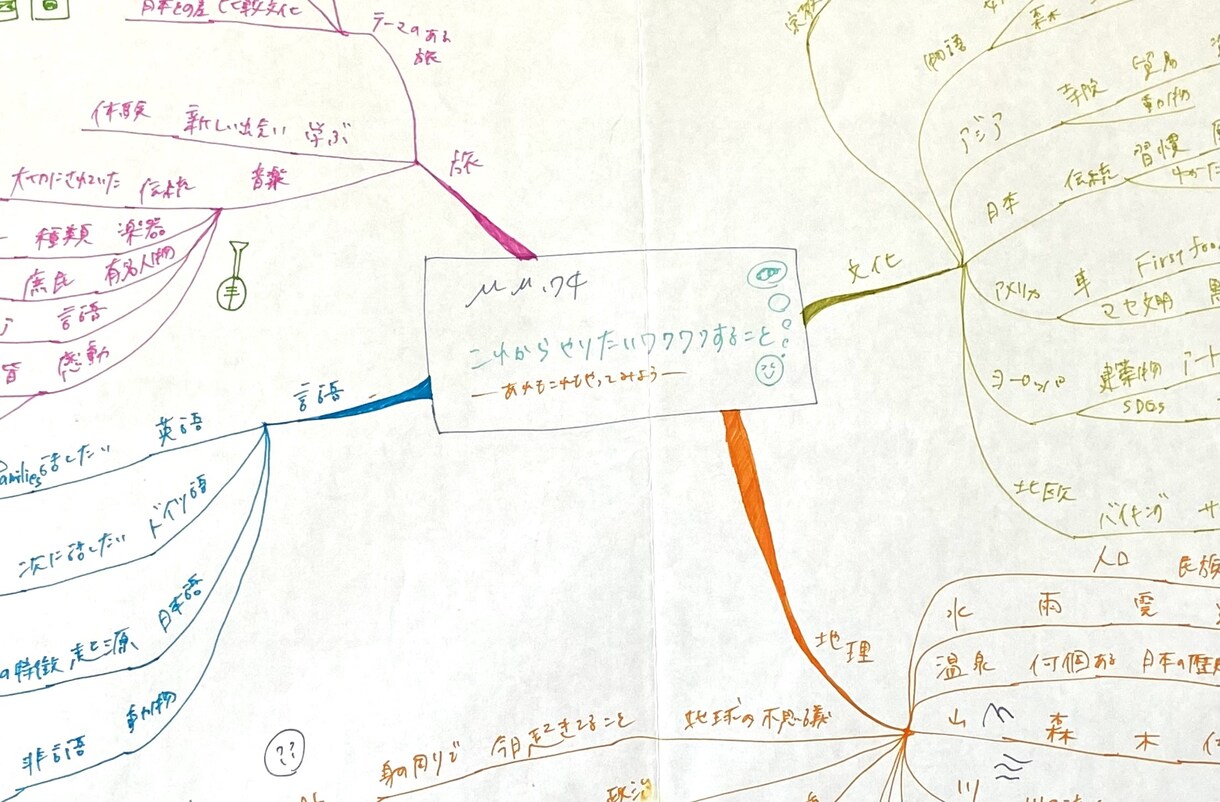 日本との差 比較文化
テーマのある
旅
体験 新しい出会い 学ぶ
旅
大切にされていた 伝統 音楽
種類 楽器
庶民 有名人物
言語
感動
言語
英語
families 話したい
ドイツ語
次に話したい
日本語
の特徴 起源
動物
非言語
??
これからやりたいワクワクすること
―あれもこれもやってみよう―
文化
物語
森
アジア 寺院 貿易
動物
日本 伝統 習慣
アメリカ 車 First foo
マヤ文明
ヨーロッパ 建築物 アート
SDGs
北欧 バイキング サ
地理
人口 民族
水 雨 雲
温泉 何個ある 日本の歴
山 森 木
川
地球の不思議
身の周りで 今日起きてること
政治